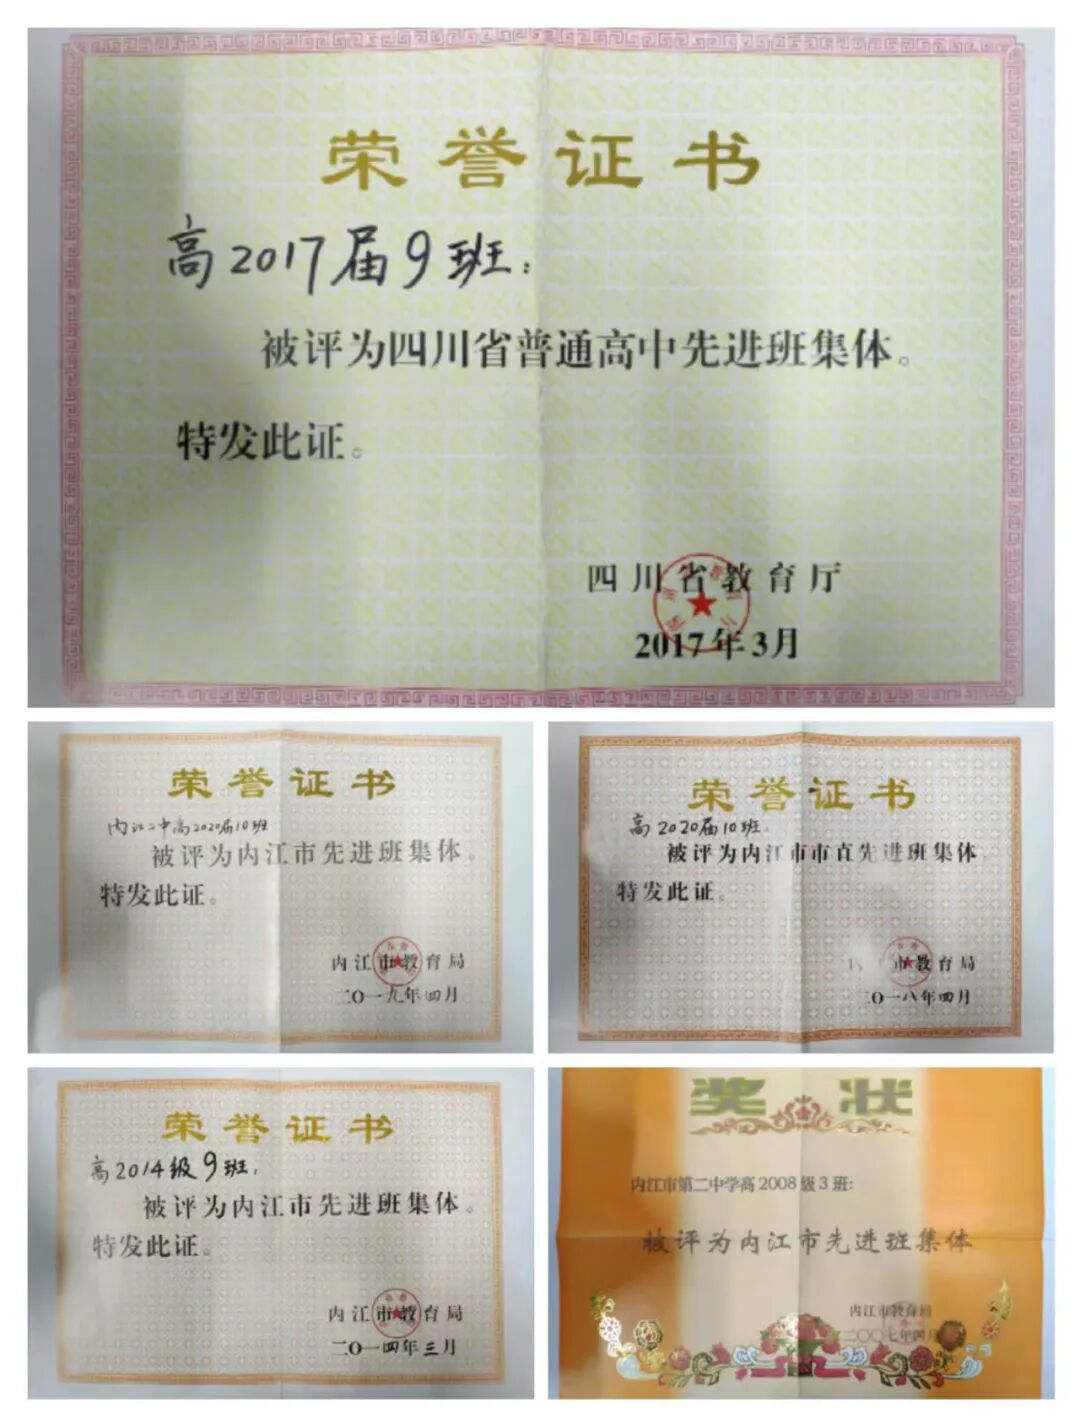 荣誉证书
高2017届9班：
被评为四川省普通高中先进班集体。
特发此证。
四川省教育厅
2017年3月
荣誉证书
内江二中高2020届10班
被评为内江市先进班集体。
特发此证。
内江市教育局
二〇一九年四月
荣誉证书
高2020届10班：
被评为内江市市直先进班集体
特发此证。
市教育局
二〇一八年四月
荣誉证书
高2014级9班：
被评为内江市先进班集体。
特发此证。
内江市教育局
二〇一四年三月
奖状
内江市第二中学高2008级3班：
被评为内江市先进班集体
内江市教育局
二〇〇七年四月